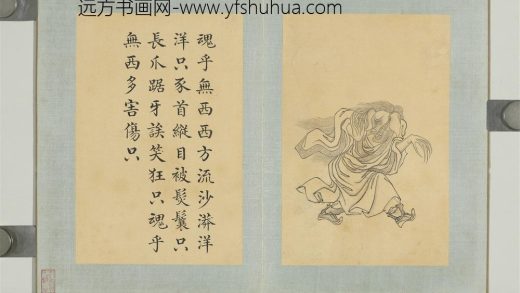 远方书画网-www.yfshuhua.com
魂乎無西西方流沙漭洋
洋只豕首縱目被髮鬤只
長爪踞牙誒笑狂只魂乎
無西多害傷只